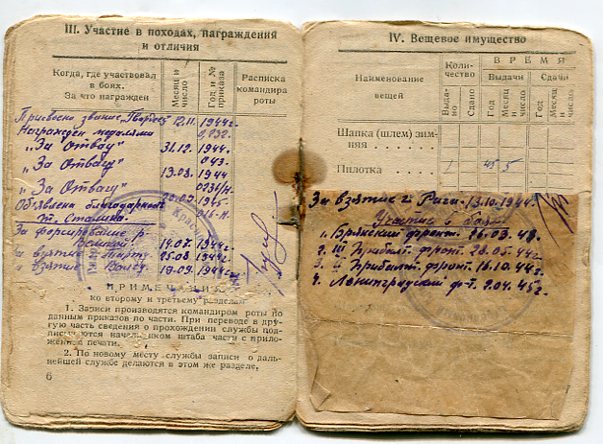 III. Участие в походах, награждения
и отличия
Когда, где участвовал
в боях.
За что награжден
Месяц и
число
Год и №
приказа
Расписка
командира
роты
Присвоено звание „Гвардеец" 12.11. 1944г.
Награжден медалями 0,032.
„За Отвагу" 31.12. 1944.
043.
„За Отвагу" 13.08. 1944
„За Отвагу" 0234/н.
1945
Объявлена благодарность 016-н.
т. Сталина.
За форсирование р.
Великой! 19.07. 1944г.
за взятие Тарту 25.08 1944г.
„ взятие Валга 19.09. 1944г.
ПРИМЕЧАНИЕ
ко второму и третьему разделам
1. Записи производятся командиром роты по
данным приказов по части. При переводе в дру-
гую часть сведения о прохождении службы под-
писываются начальником штаба части с прило-
жением печати.
2. По новому месту службы записи о даль-
нейшей службе делаются в этом же разделе.
6
IV. Вещевое имущество
Наименование
вещей
Коли-
чество
ВРЕМЯ
Выдачи
Сдачи
Выда-
но
Сдано
Год
Месяц
и
число
Год
Месяц
и
число
Шапка (шлем) зим-
няя . . . .
Пилотка . . . . 1 45 5
За взятие г. Риги. 13.10.1944г.
Участие в боях.
1. Брянский фронт. 26.03.43.
2. III Прибалт. фронт. 28.05.44г.
3. II Прибалт. фронт. 16.10.44г.
4. Ленинградский ф-т. 9.04.45г.